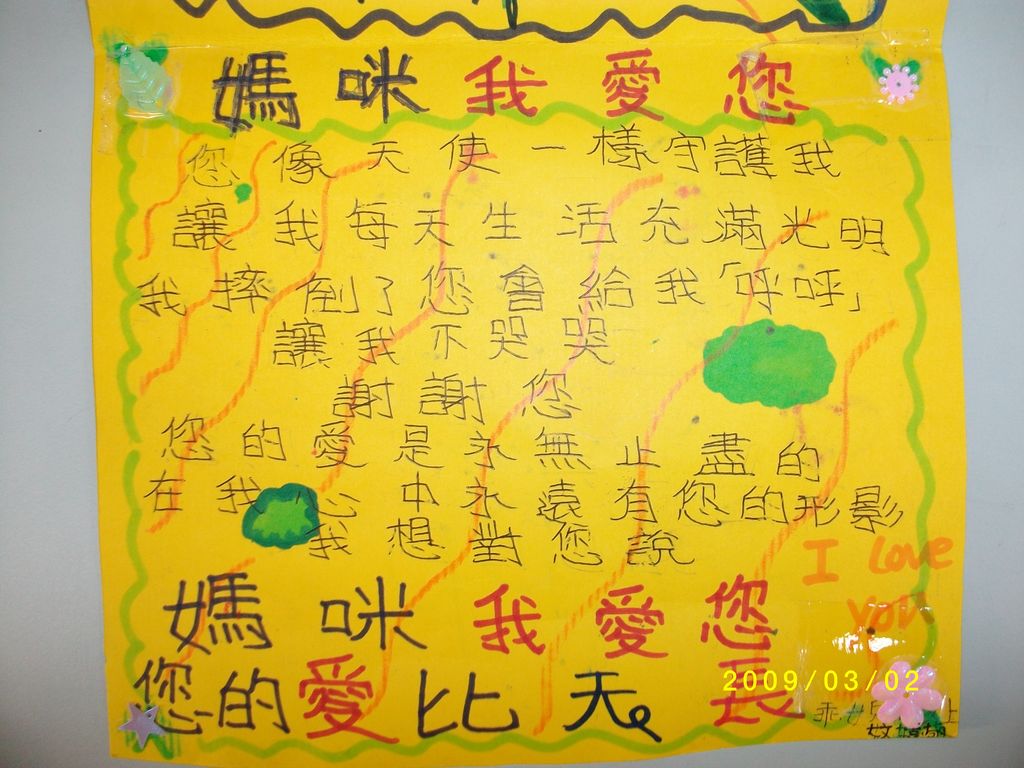 媽咪我愛您
您像天使一樣守護我
讓我每天生活充滿光明
我摔倒了您會給我「呼呼」
讓我不哭哭
謝謝您
您的愛是永無止盡的
在我心中永遠有您的形影
我想對您說
I Love
You
媽咪我愛您
您的愛比天長
2009/03/02
乖女兒
上